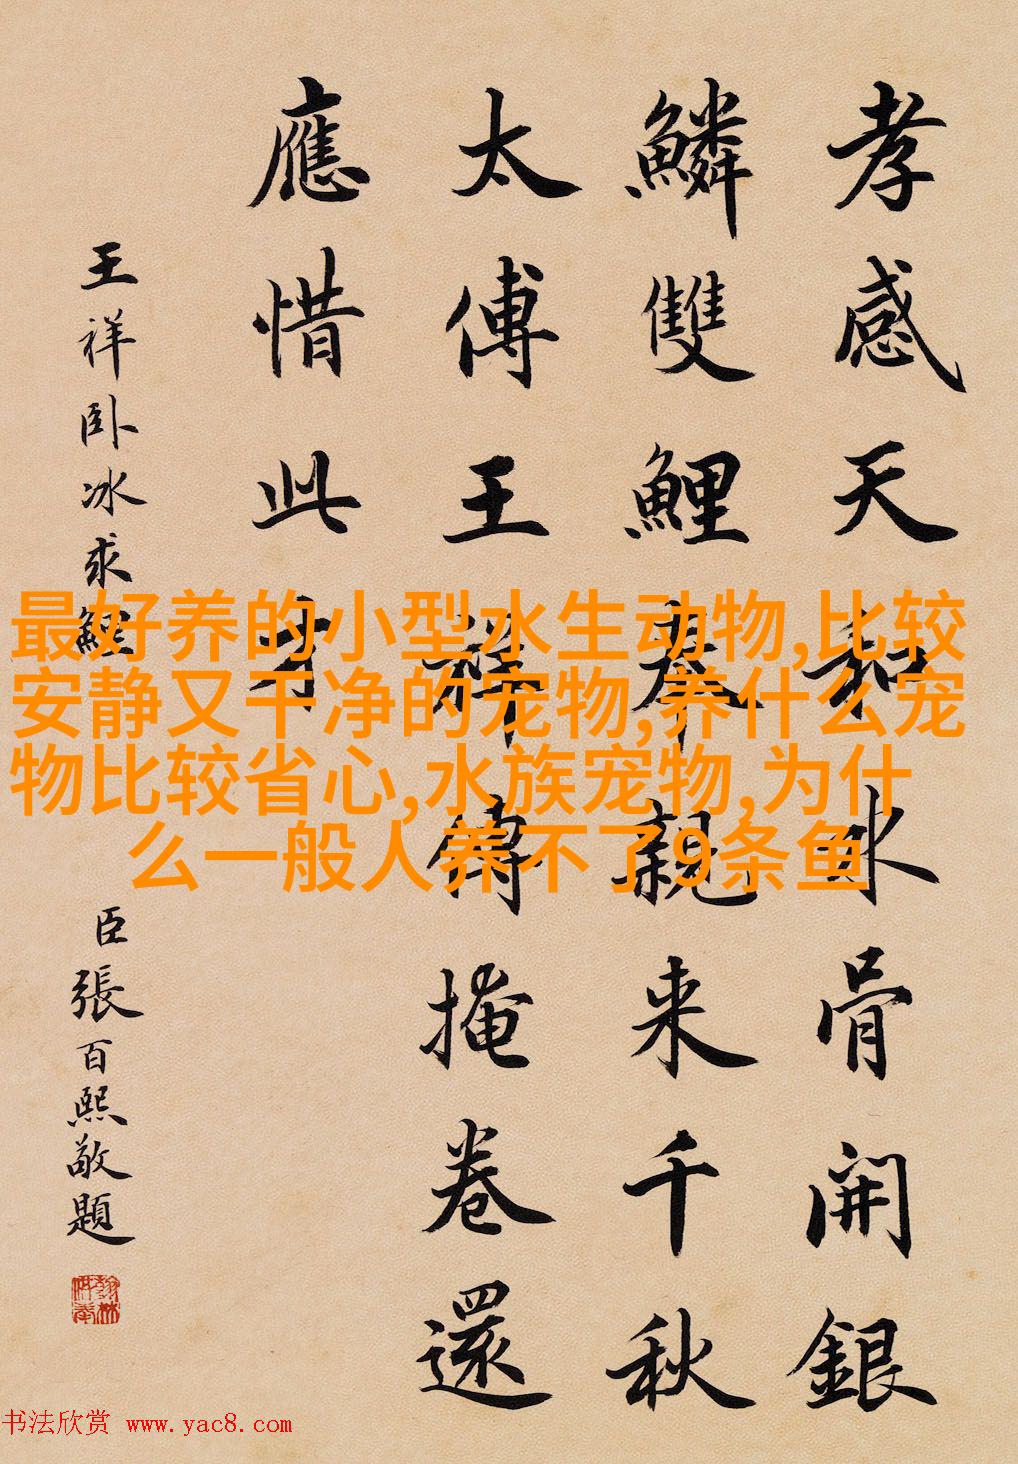 孝感天和冰骨開銀
鱗雙鯉奉親来千秋
太傅王祥傳掩卷還
應惜此才
王祥卧冰求鯉
臣張百熙敬題
最好养的小型水生动物,比较
安静又干净的宠物,养什么宠
物比较省心,水族宠物,为什
么一般人养不了9条鱼
书法欣赏 www.yac8.com